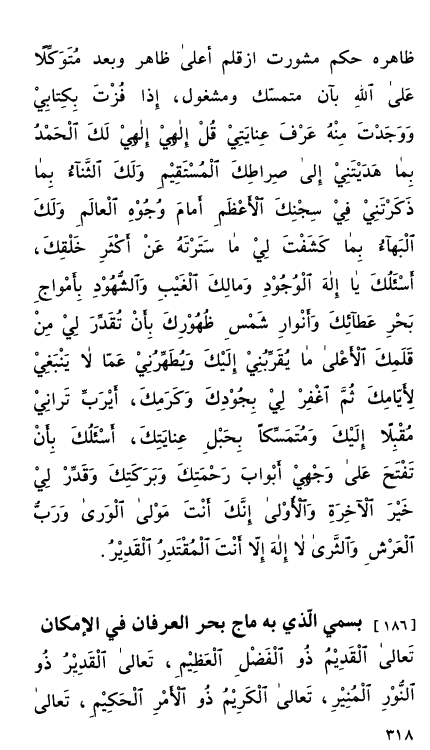 ظاهره حکم مشورت ازقلم أعلىٰ ظاهر وبعد مُتَوَكِّلًا
عَلَىٰ ٱللهِ بآن متمسّك ومشغول، إِذا فُزْتَ بِكِتابِيْ
وَوَجَدْتَ مِنْهُ عَرْفَ عِنايَتِيْ قُلْ إِلٰهِيْ إِلٰهِيْ لَكَ ٱلْحَمْدُ
بِما هَدَيْتَنِيْ إِلىٰ صِراطِكَ ٱلْمُسْتَقِيْمِ وَلَكَ ٱلثَّنآءُ بِما
ذَكَرْتَنِيْ فِيْ سِجْنِكَ ٱلْأَعْظَمِ أَمامَ وُجُوْهِ ٱلْعالَمِ وَلَكَ
ٱلْبَهآءُ بِما كَشَفْتَ لِيْ ما سَتَرْتَهُ عَنْ أَكْثَرِ خَلْقِكَ،
أَسْئَلُكَ يا إِلٰهَ ٱلْوُجُوْدِ وَمالِكَ ٱلْغَيْبِ وَٱلشُّهُوْدِ بِأَمْواجِ
بَحْرِ عَطآئِكَ وَأَنْوارِ شَمْسِ ظُهُوْرِكَ بِأَنْ تُقَدِّرَ لِيْ مِنْ
قَلَمِكَ ٱلْأَعْلىٰ ما يُقَرِّبُنِيْ إِلَيْكَ وَيُطَهِّرُنِيْ عَمّا لا يَنْبَغِيْ
لِأَيّامِكَ ثُمَّ ٱغْفِرْ لِيْ بِجُوْدِكَ وَكَرَمِكَ، أَيْرَبِّ تَرانِيْ
مُقْبِلًا إِلَيْكَ وَمُتَمَسِّكاً بِحَبْلِ عِنايَتِكَ، أَسْئَلُكَ بِأَنْ
تَفْتَحَ عَلىٰ وَجْهِيْ أَبْوابَ رَحْمَتِكَ وَبَرَكَتِكَ وَقَدِّرْ لِيْ
خَيْرَ ٱلْآخِرَةِ وَٱلْأُوْلىٰ إِنَّكَ أَنْتَ مَوْلىٰ ٱلْوَرىٰ وَرَبُّ
ٱلْعَرْشِ وَٱلثَّرىٰ لا إِلٰهَ إِلّا أَنْتَ ٱلْمُقْتَدِرُ ٱلْقَدِيْرُ.
[١٨٦] بسمي الّذي به ماج بحر العرفان في الإمكان
تَعالىٰ ٱلْقَدِيْمُ ذُو ٱلْفَضْلِ ٱلْعَظِيْمِ، تَعالىٰ ٱلْقَدِيْرُ ذُو
ٱلنُّوْرِ ٱلْمُنِيْرِ، تَعالىٰ ٱلْكَرِيْمُ ذُو ٱلْأَمْرِ ٱلْحَكِيْمِ، تَعالىٰ
٣١٨